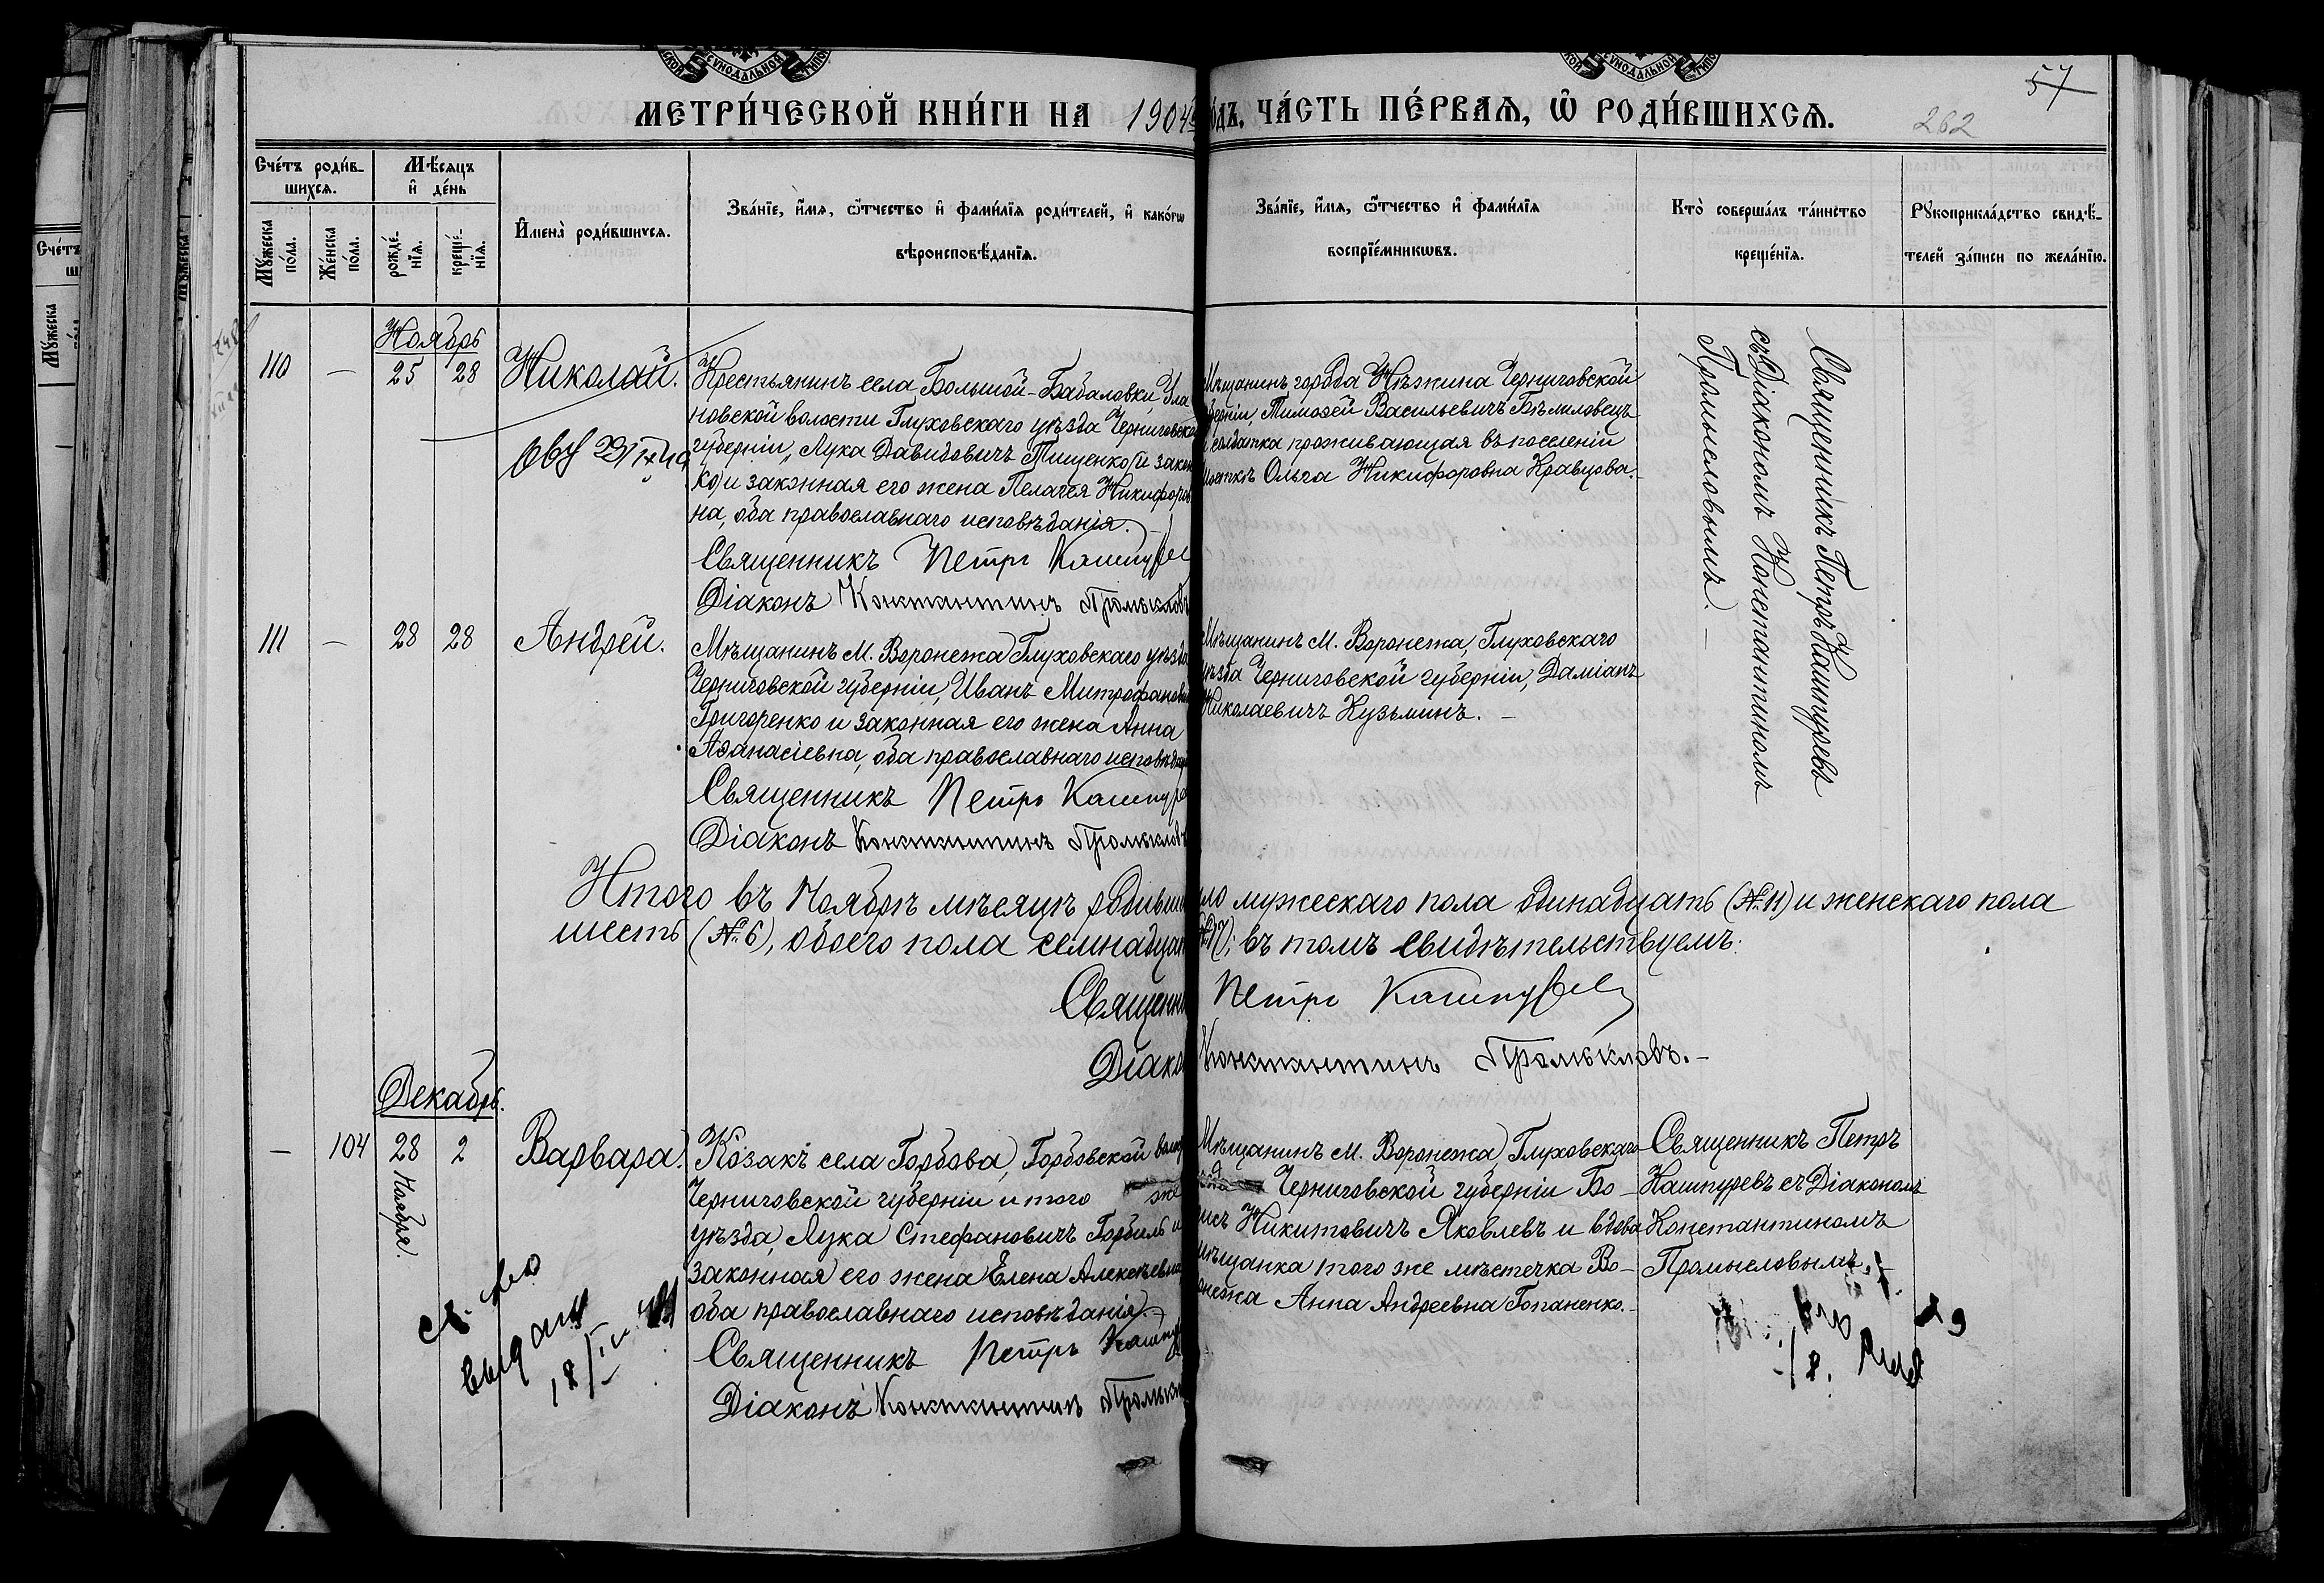 МЕТРИ́ЧЕСКОЙ КНИ́ГИ НА 1904 го́дъ, ЧА́СТЬ ПЕ́РВАЯ, Ѡ РОДИ́ВШИХСЯ.
57
262
Сче́тъ роди́в-
шихся.
Мѣ́сяцъ
и де́нь
Му́жеска
по́ла.
Же́нска
по́ла.
рожде́-
нїя.
креще́-
нїя.
Имена̀ роди́вшихся.
Зва́нїе, и́мя, ѻ҆́тчество и фами́лїя роди́телей, и како́гѡ
вѣроисповѣ́данїя.
Зва́нїе, и́мя, ѻ҆́тчество и фами́лїя
воспрїе́мникѡвъ.
Кто̀ соверша́лъ та́инство
креще́нїя.
Рꙋкоприкла́дство свидѣ́-
телей за́писи по жела́нїю.
Ноябрь
110 — 25 28 Николай.
Крестьянинъ села Большой-Бабаловки, Ула
новской волости Глуховскаго уѣзда Черниговской
губерніи, Лука Давидовичъ Тищенко (и закон
ко) и законная его жена Пелагея Никифоров
на, оба православнаго исповѣданія. —
Священникъ Петръ Кашпурев
Діаконъ Константинъ Промысловъ
Мѣщанинъ города Нѣжина Черниговской
губерніи, Тимоѳей Васильевичъ Бѣлиловецъ
солдатка проживающая въ поселеніи
Ольга Никифоровна Кравцова.
Священникъ Петръ Кашпуревъ
съ Діакономъ Константиномъ
Промысловымъ. —
111 — 28 28 Андрей.
Мѣщанинъ м. Воронежа Глуховскаго уѣзда
Черниговской губерніи, Иванъ Митрофанови
Григоренко и законная его жена Анна
Аѳанасіевна, оба православнаго исповѣдан
Священникъ Петръ Кашпуре
Діаконъ Константинъ Промыслов
Мѣщанинъ м. Воронежа, Глуховскаго
уѣзда Черниговской губерніи, Даміанъ
Николаевичъ Кузьминъ. —
Итого въ Ноябрѣ мѣсяцѣ родивши ло мужескаго пола одинадцать (№ 11) и женскаго пола
шесть (№ 6), обоего пола семнадцат № 17); въ томъ свидѣтельствуемъ:
Священни Петръ Кашпурев
Діако Константинъ Промысловъ. —
Декабрь.
— 104 28 2 Варвара.
Ноября.
Козакъ села Горбова, Горбовской волос
Черниговской губерніи и того же
уѣзда, Лука Стефановичъ Горбиль и
законная его жена Елена Алексѣевна
оба православнаго исповѣданія. —
Священникъ Петръ Кашпу
Діаконъ Константинъ Промысл
Мѣщанинъ м. Воронежа, Глуховскаго
Черниговской губерніи Бо-
рисъ Никитовичъ Яковлевъ и вдова
мѣщанка того же мѣстечка Во-
ронежа Анна Андреевна Гопаненко. —
Священникъ Петръ
Кашпуревъ съ Діакономъ
Константиномъ
Промысловымъ.
выдан